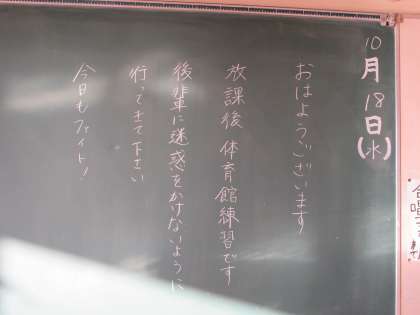 10月18日(水)
おはようございます
放課後 体育館練習です
後輩に迷惑をかけないように
行ってきて下さい
今日もファイト!